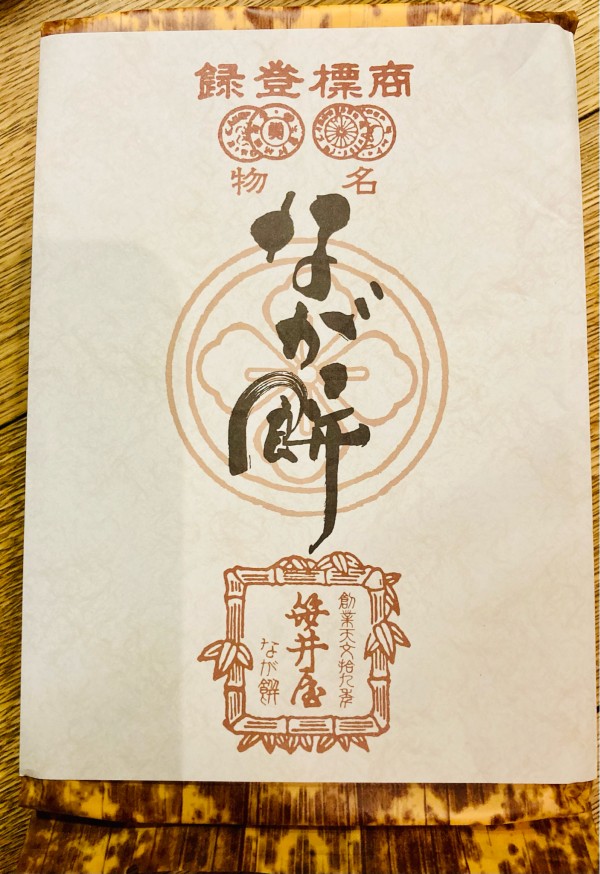 商標登録
名物
なが餅
創業天文拾九年
笹井屋
なが餅